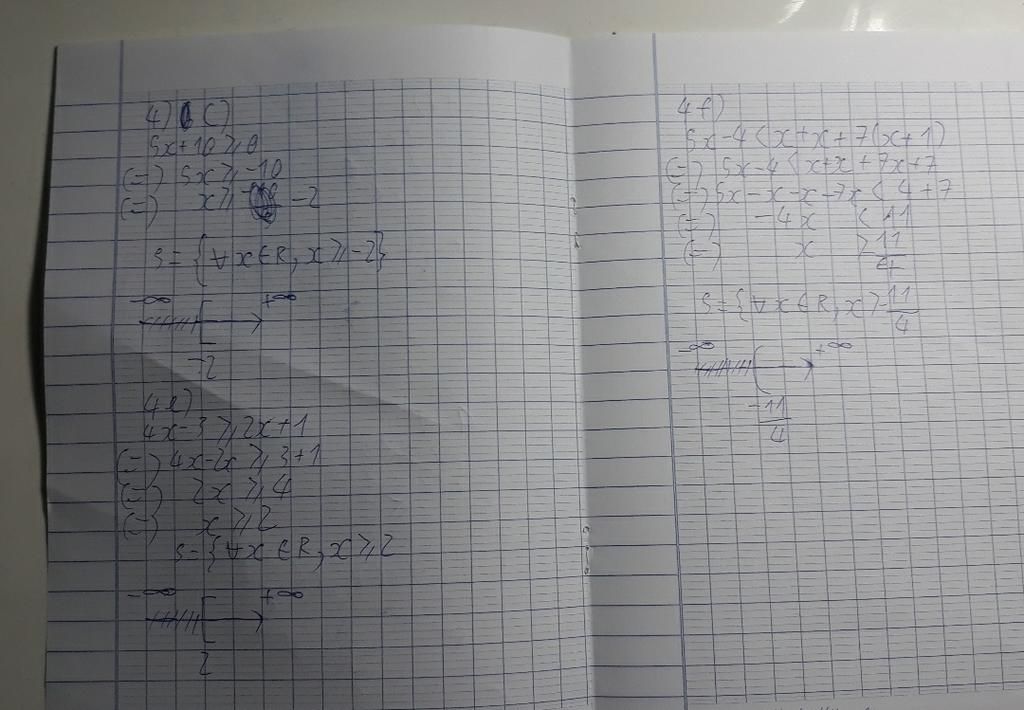 4) c)
5x+10 ⩾ 0
(=) 5x ⩾ -10
(=) x ⩾ -2
S = {∀ x ∈ R, x ⩾ -2}
-∞ [ +∞
-2
4e)
4x-3 ⩾ 2x+1
(=) 4x-2x ⩾ 3+1
(=) 2x ⩾ 4
(=) x ⩾ 2
S = {∀x ∈ R, x ⩾ 2
-∞ [ +∞
2
4f)
5x-4 < x+x+7(x+1)
(=) 5x-4 < x+x+7x+7
(=) 5x-x-x-7x < 4+7
(=) -4x < 11
(=) x > 11/4
S = {∀ x ∈ R, x > -11/4
-∞ ( +∞
-11/4